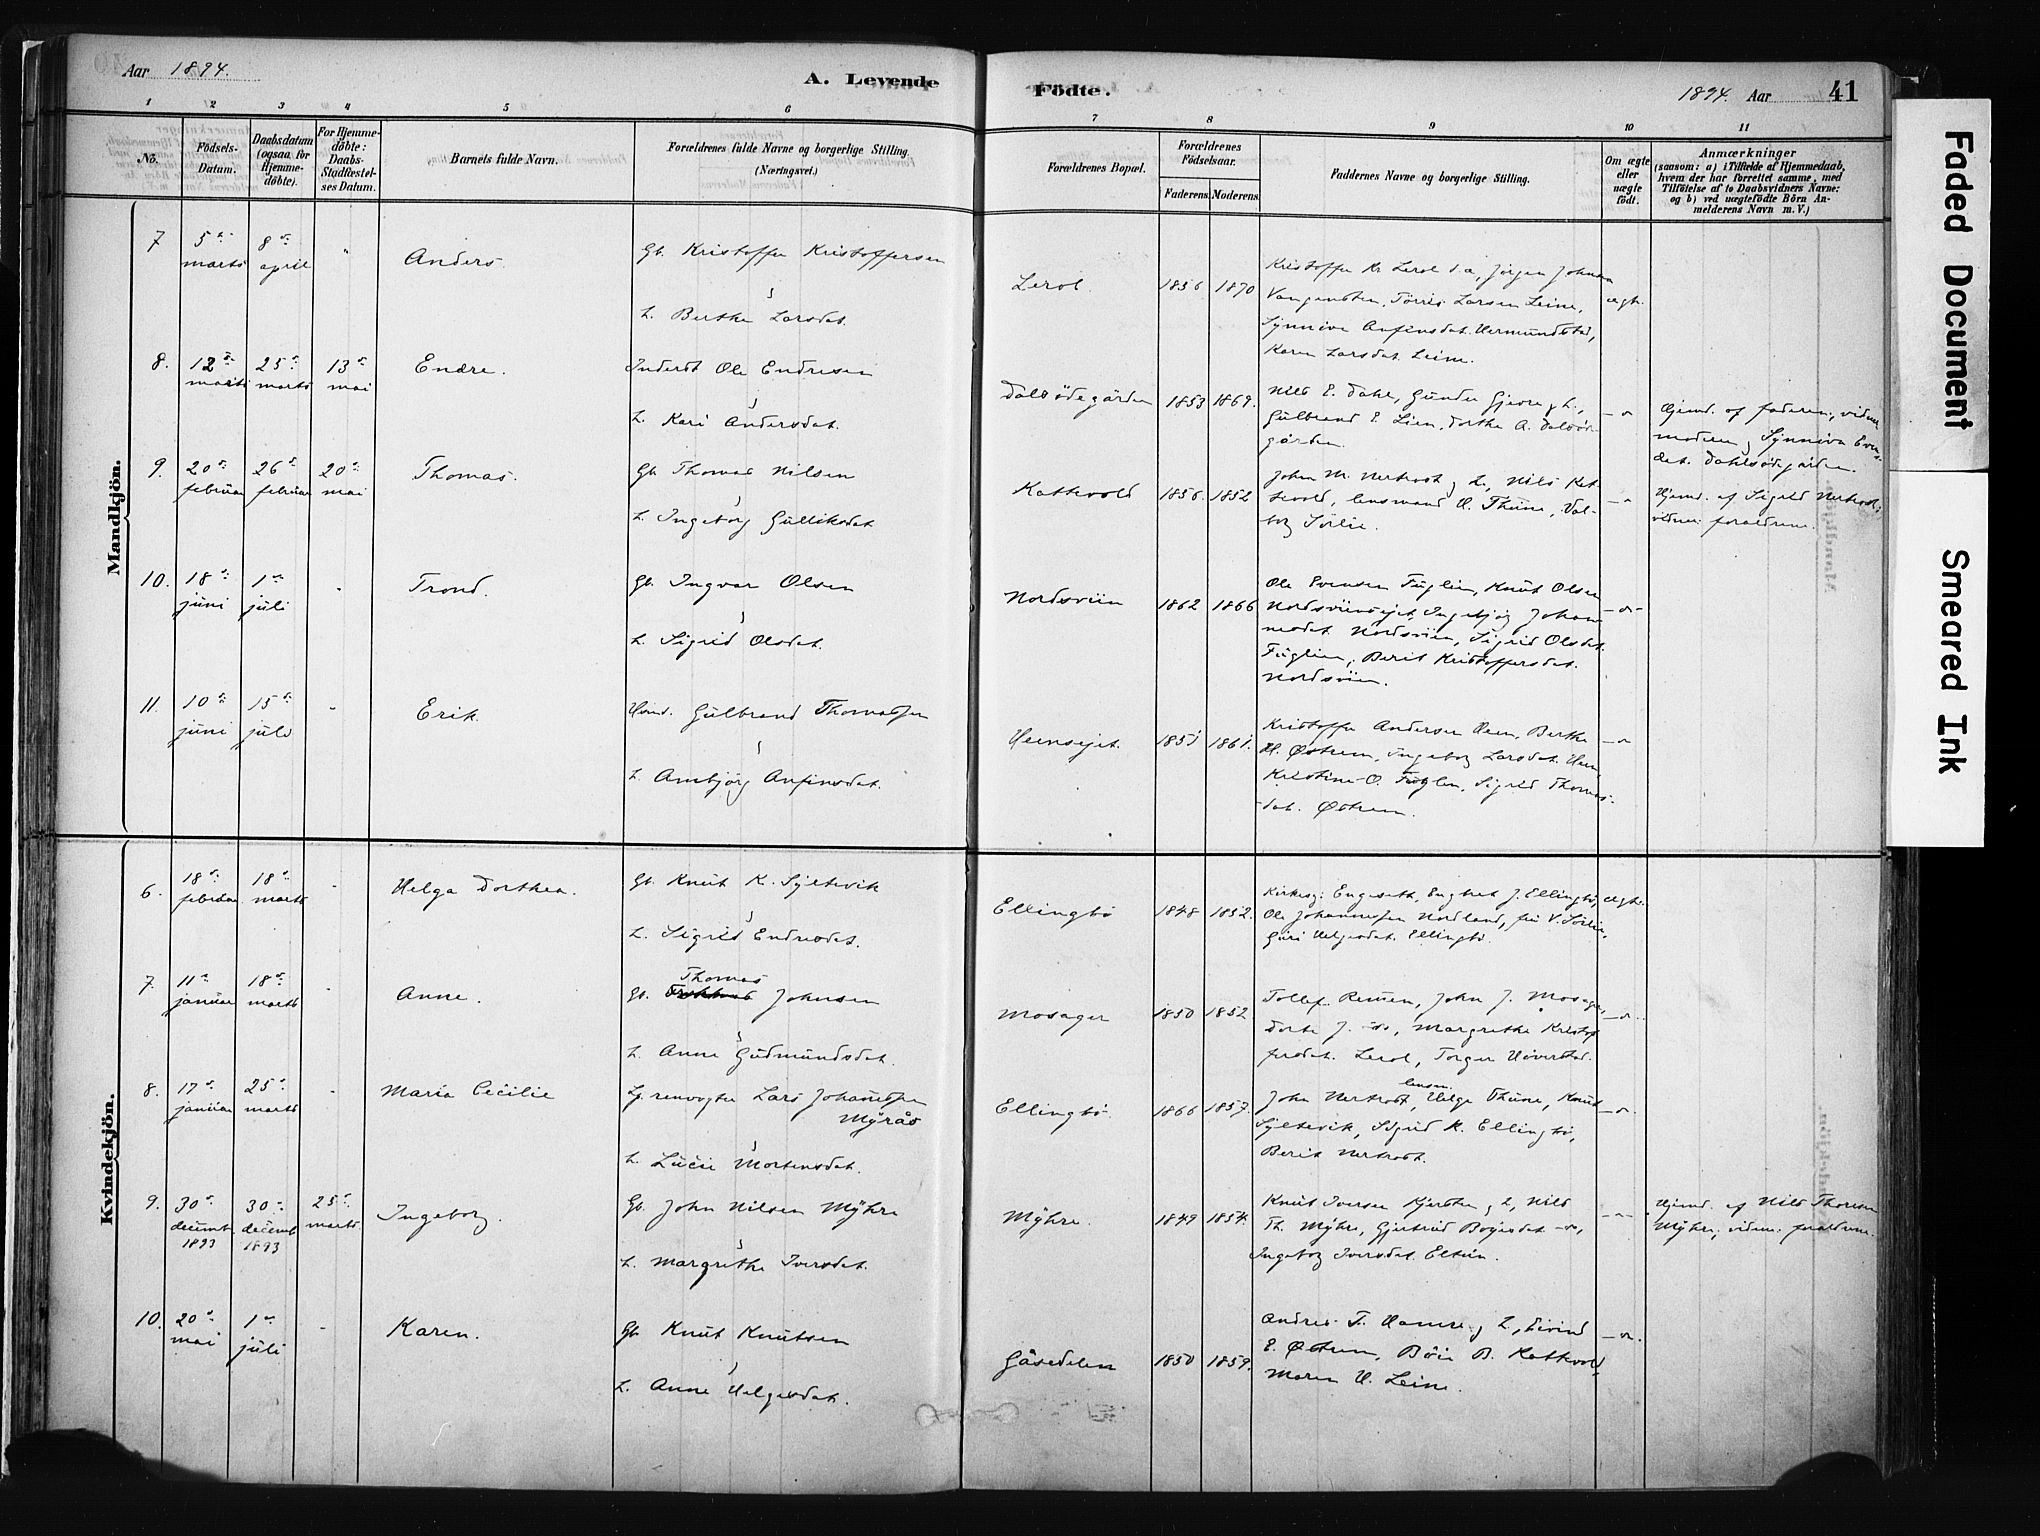 Aar 1894.
A. Levende
Födte.
1894. Aar
41
1 2 3 4 5 6 7 8 9 10 11
No.
Födsels-
Datum.
Daabsdatum
(ogsaa for
Hjemme-
döbte).
For Hjemme-
döbte:
Daabs-
Stadfæstel-
ses Datum.
Barnets fulde Navn.
Forældrenes fulde Navne og borgerlige Stilling.
(Næringsvei.)
Forældrenes Bopæl.
Forældrenes
Födselsaar.
Faderens. Moderens.
Faddernes Navne og borgerlige Stilling.
Om ægte
eller
uægte
födt.
Anmærkninger
(saasom: a) i Tilfælde af Hjemmedaab,
hvem der har forrettet samme, med
Tilföielse af to Daabsvidners Navne:
og b) ved uægtefödte Börn An-
melderens Navn m. V.)
Mandkjön.
7
5
marts
8
april
Anders.
Gb. Kristoffer Kristoffersen
h. Berthe Larsdat.
Lerol
1856 1870
Kristoffer Kr. Lerol s.a, Jörgen Johnsen
Vangensten, Törris Larsen Leine,
Synnöve Anfinsdat. Hermundstad,
Karen Larsdat. Leine.
ægte.
8.
12
marts
25
marts
13
mai
Endre.
Inderst Ole Endresen
h. Kari Andersdat.
Dalsödegården
1853 1869.
Nils E. Dahl, Gunder Gjevre & h.,
Gulbrand E. Lien, Dorthe A. Dalsöde-
gården.
Hjemd. af faderen; vidner
moderen & Synnöva Even-
dat. Dahlsödegården.
9.
20
februar
26
februar
20
mai
Thomas.
Gb. Thomas Nilsen
h. Ingeborg Gulliksdat
Kattevold
1856. 1852
John M. Nertrost & h., Nils Kat-
tevold, lensmand H. Thune, Val-
borg Sörlie.
Hjemd. af Sigrid Nertrost;
vidner: forældrene.
10.
18
juni
1
juli
Trond.
Gb. Ingvar Olsen
h. Sigrid Olsdat.
Nordsviin
1862 1866
Ole Svensen Fuglien, Knut Olsen
Nordsviinsejet, Ingebjörg Johan-
nesdat. Nordsviin, Sigrid Olsdat.
Fuglien, Berit Kristoffersdat.
Nordsviin.
11.
10
juni
15
juli
Erik
Husmd. Gulbrand Thomassen
h. Ambjörg Anfinsdat.
Heensejet.
1851 1861.
Kristoffer Andersen Heen, Berthe
H. Östrem, Ingeborg Larsdat. Heen,
Kristine O. Fuglien, Sigrid Thomas-
dat. Östrem.
Kvindekjön.
6.
18
februar
18
marts
Helga Dorthea.
Gb. Knut K. Syltevik
h. Sigrid Endresdat.
Ellingbö
1848 1852.
Kirkesg. Engeseth, Engbret J. Ellingbö,
Ole Johannessen Nordland, fru V. Sörlie,
Guri Helgesdat. Ellingbö.
ægte.
7.
11
januar
18
marts
Anne.
Thomas
Gb. Johnsen
h. Anne Gudmundsdat.
Mosager
1850 1852
Tollef Remen, John J. Mosager,
Dorte J. do., Margrethe Kristof-
fersdat. Lerol, Torger Höverstad.
8.
17
januar
25
marts
Maria Cecilie
Lars Johannessen
Myrås
h. Lucie Mortensdat.
Ellingbö
1866 1857.
lensm.
John Nertrost, Helge Thune, Knut
Syltevik, Sigrid K. Ellingbö,
Berit Nertrost.
9.
30
decemb.
1893
30
decemb.
1893
25
marts
Ingeborg.
Gb. John Nilsen Myhre
h. Margrethe Iversdat.
Myhre.
1849 1854.
Knut Iversen Kjersten & h, Nils
Th. Myhre, Gjertrud Boyesdat do,
Ingeborg Iversdat. Eltun.
Hjemd. af Nils Thoresen
Myhre; vidner: forældrene.
10.
20
mai
1
juli
Karen.
Gb. Knut Knutsen
h. Anne Helgesdat.
Gåsedelen
1850 1859.
Andres T. Hamre & h, Eivind
E. Östrem, Böie B. Kattevold,
Maren H. Leine.
Faded Document
Smeared Ink